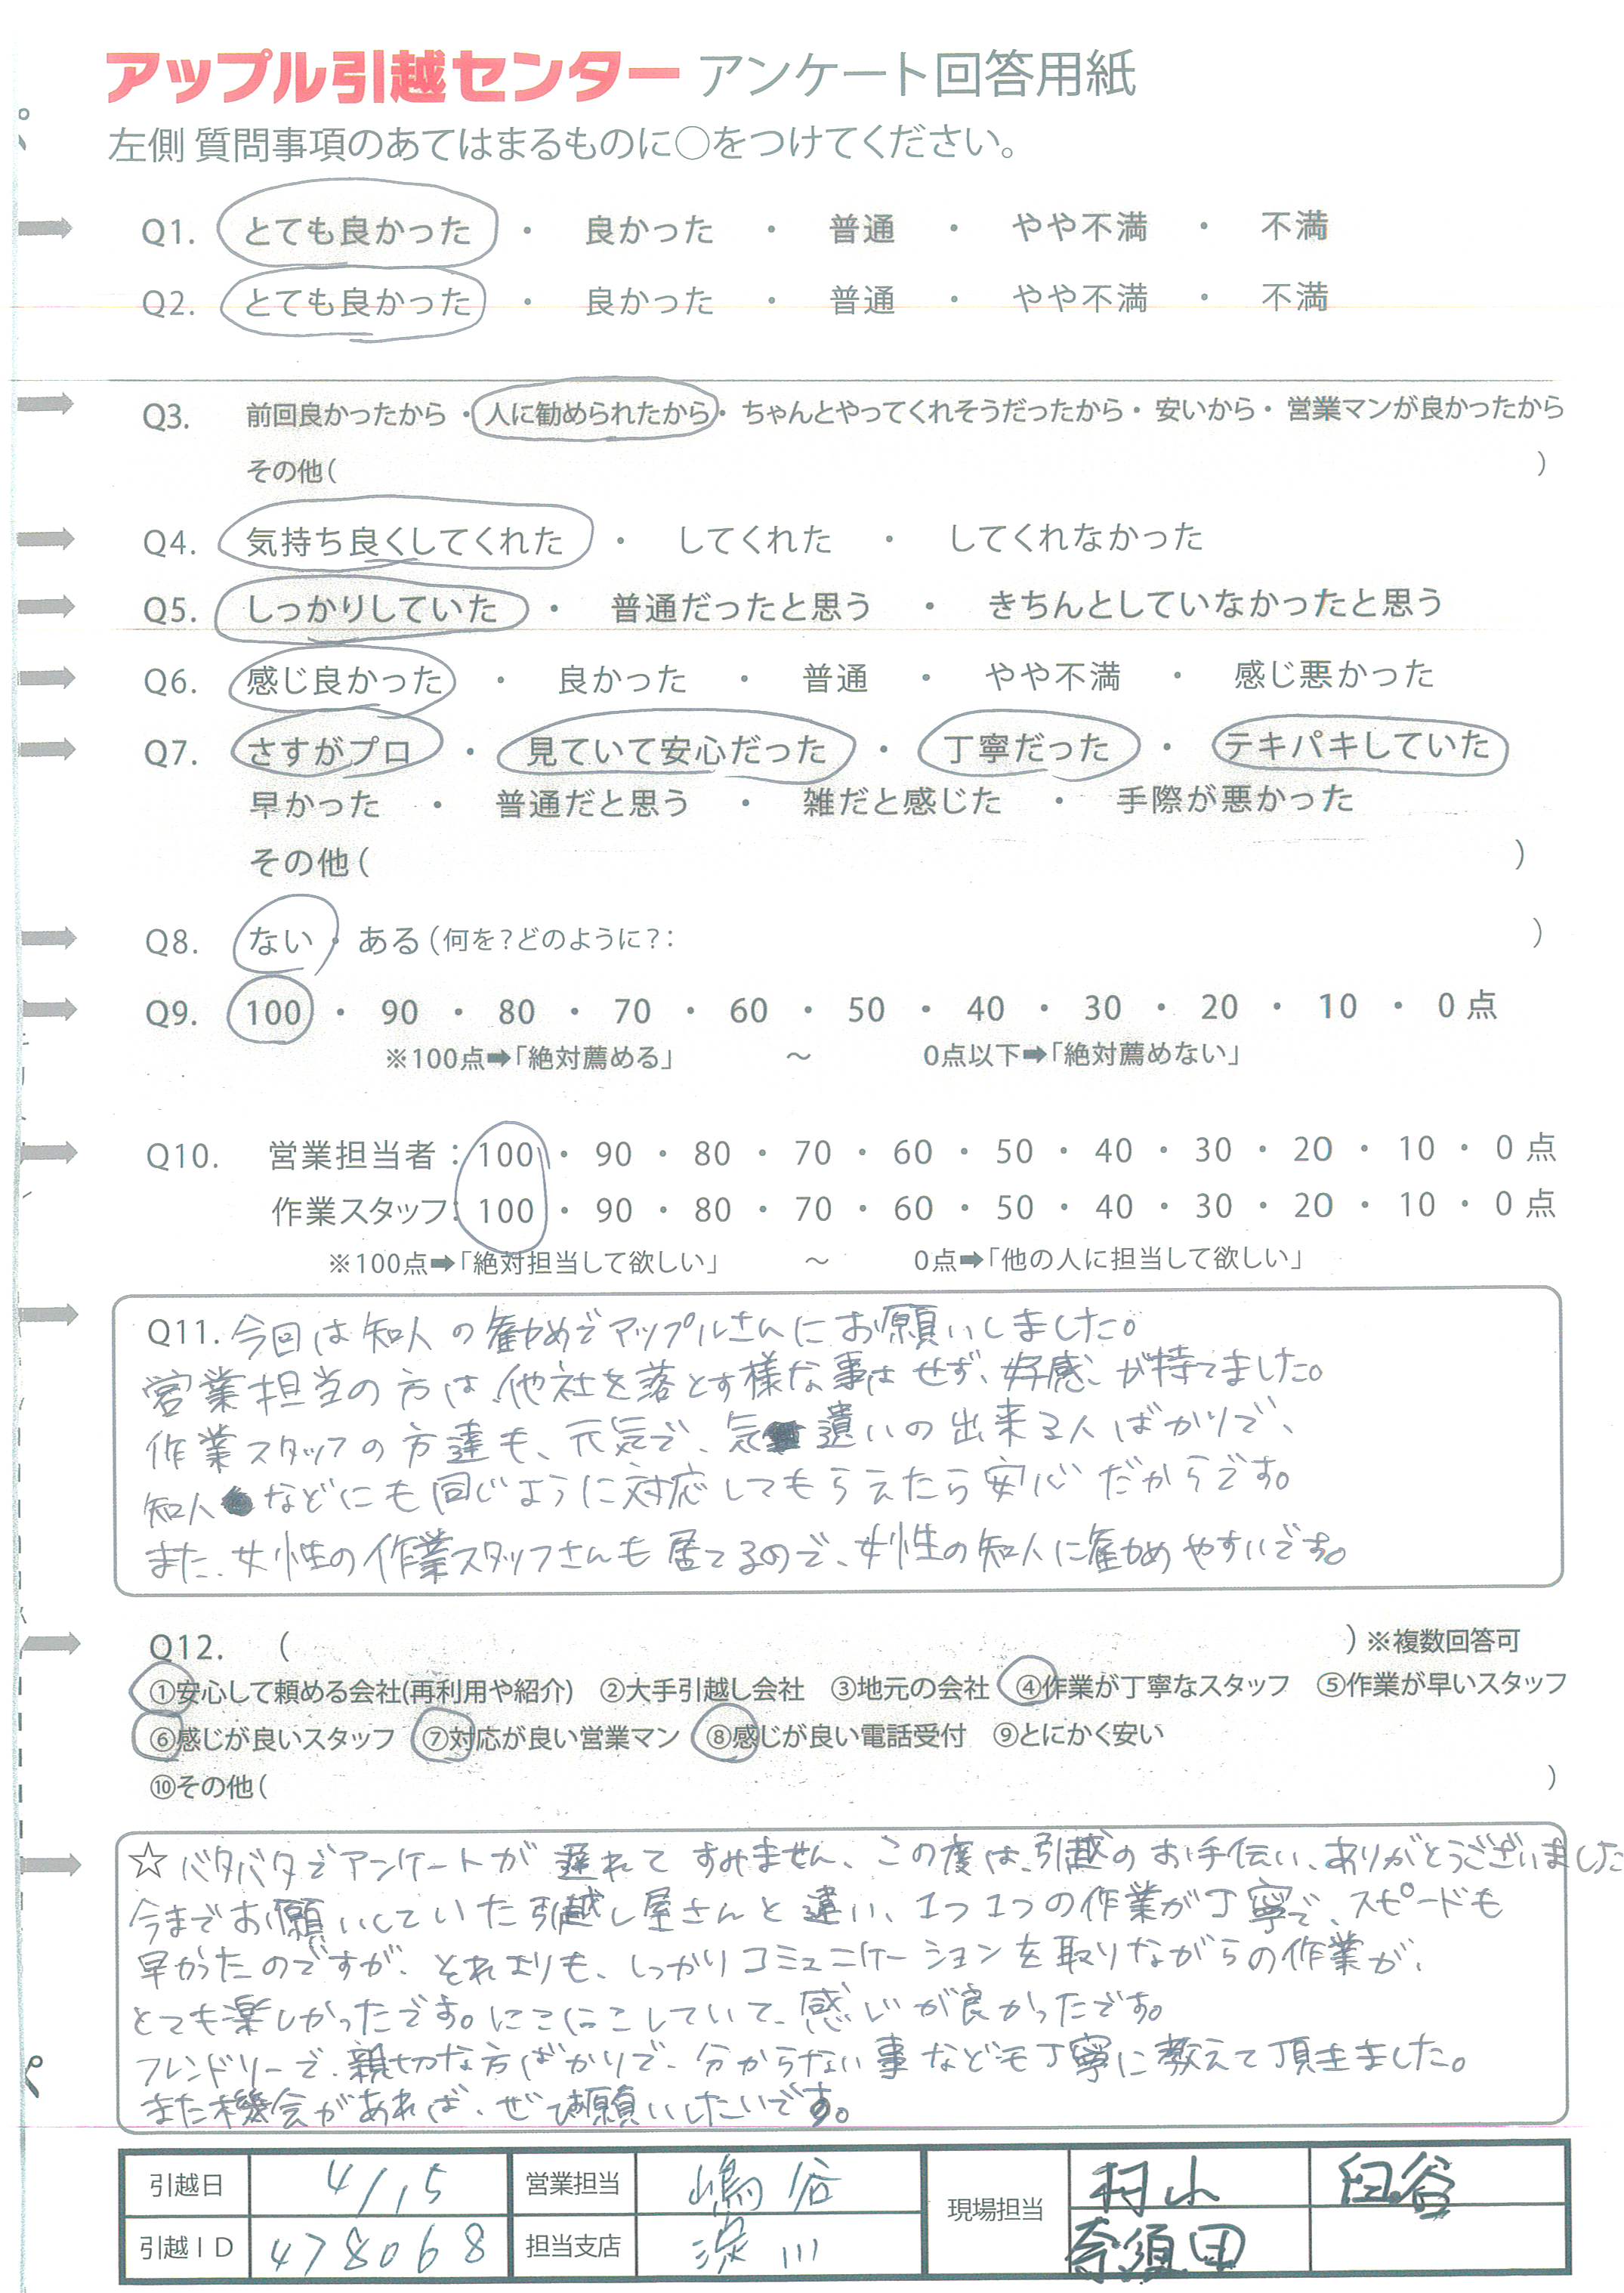 アップル引越センター アンケート回答用紙
左側 質問事項のあてはまるものに○をつけてください。
Q1. とても良かった ・ 良かった ・ 普通 ・ やや不満 ・ 不満
Q2. とても良かった ・ 良かった ・ 普通 ・ やや不満 ・ 不満
Q3. 前回良かったから ・ 人に勧められたから ・ ちゃんとやってくれそうだったから ・ 安いから ・ 営業マンが良かったから
その他( )
Q4. 気持ち良くしてくれた ・ してくれた ・ してくれなかった
Q5. しっかりしていた ・ 普通だったと思う ・ きちんとしていなかったと思う
Q6. 感じ良かった ・ 良かった ・ 普通 ・ やや不満 ・ 感じ悪かった
Q7. さすがプロ ・ 見ていて安心だった ・ 丁寧だった ・ テキパキしていた
早かった ・ 普通だと思う ・ 雑だと感じた ・ 手際が悪かった
その他( )
Q8. ない ・ ある(何を?どのように?: )
Q9. 100 ・ 90 ・ 80 ・ 70 ・ 60 ・ 50 ・ 40 ・ 30 ・ 20 ・ 10 ・ 0 点
※100点➡「絶対薦める」 ～ 0点以下➡「絶対薦めない」
Q10. 営業担当者: 100 ・ 90 ・ 80 ・ 70 ・ 60 ・ 50 ・ 40 ・ 30 ・ 20 ・ 10 ・ 0 点
作業スタッフ: 100 ・ 90 ・ 80 ・ 70 ・ 60 ・ 50 ・ 40 ・ 30 ・ 20 ・ 10 ・ 0 点
※100点➡「絶対担当して欲しい」 ～ 0点➡「他の人に担当して欲しい」
Q11. 今回は知人の勧めでアップルさんにお願いしました。
営業担当の方は、他社を落とす様な事はせず、好感が持てました。
作業スタッフの方達も、元気で、気遣いの出来る人ばかりで、
知人などにも同じように対応してもらえたら安心だからです。
また、女性の作業スタッフさんも居てるので、女性の知人に勧めやすいです。
Q12. ( ) ※複数回答可
①安心して頼める会社(再利用や紹介) ②大手引越し会社 ③地元の会社 ④作業が丁寧なスタッフ ⑤作業が早いスタッフ
⑥感じが良いスタッフ ⑦対応が良い営業マン ⑧感じが良い電話受付 ⑨とにかく安い
⑩その他( )
☆バタバタでアンケートが遅れてすみません、この度は、引越のお手伝い、ありがとうございました
今までお願いしていた引越し屋さんと違い、1つ1つの作業が丁寧で、スピードも
早かったのですが、それよりも、しっかりコミュニケーションを取りながらの作業が、
とても楽しかったです。にこにこしていて、感じが良かったです。
フレンドリーで、親切な方ばかりで、分からない事なども丁寧に教えて頂きました。
また機会があれば、ぜひお願いしたいです。
引越日 4/15 営業担当 嶋谷 現場担当 村山 臼谷
引越ID 478068 担当支店 淀川 奈須田